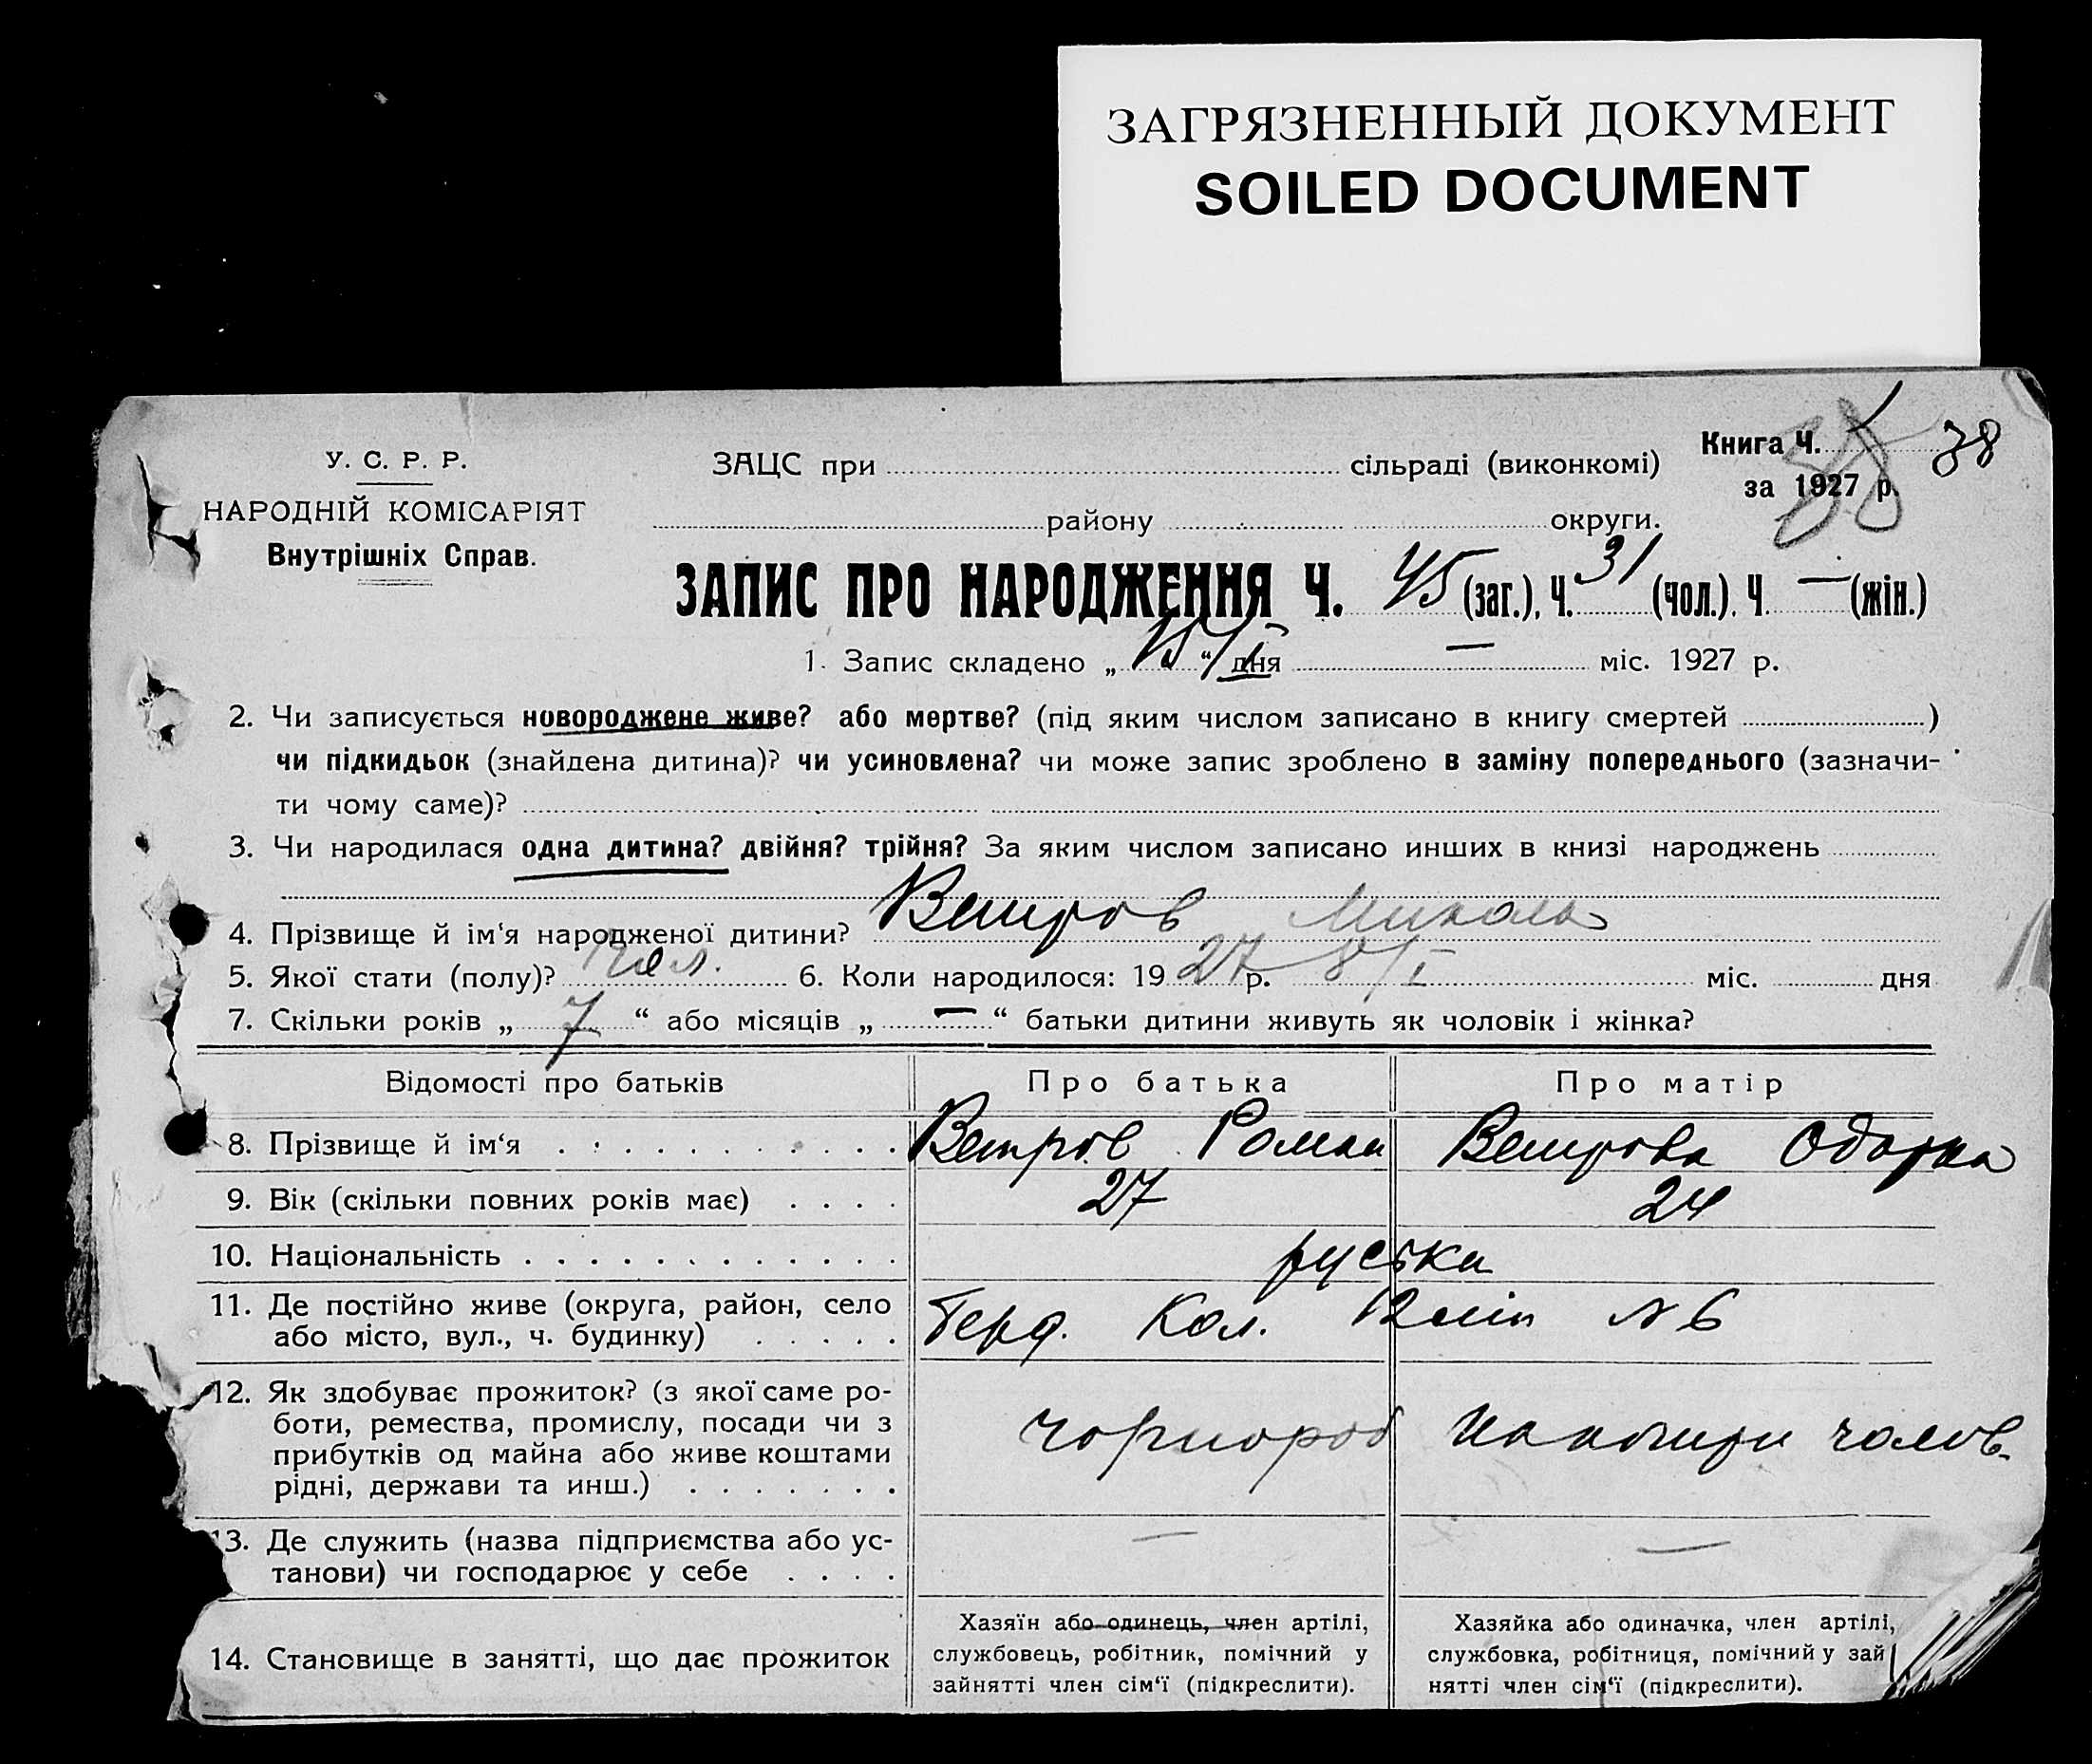 ЗАГРЯЗНЕННЫЙ ДОКУМЕНТ
SOILED DOCUMENT
У. С. Р. Р.
НАРОДНІЙ КОМІСАРІЯТ
Внутрішніх Справ.
ЗАЦС при сільраді (виконкомі)
району округи.
Книга Ч. 38
за 1927 р.
ЗАПИС ПРО НАРОДЖЕННЯ Ч. 45 (заг.), Ч. 31 (чол.), Ч. — (жін.)
1. Запис складено „15/I“ дня — міс. 1927 р.
2. Чи записується новороджене живе? або мертве? (під яким числом записано в книгу смертей )
чи підкидьок (знайдена дитина)? чи усиновлена? чи може запис зроблено в заміну попереднього (зазначи-
ти чому саме)?
3. Чи народилася одна дитина? двійня? трійня? За яким числом записано инших в книзі народжень
4. Прізвище й ім‘я народженої дитини? Ветров Микола
5. Якої стати (полу)? чол. 6. Коли народилося: 1927 р. 8/I міс. дня
7. Скільки років „ 7 “ або місяців „ — “ батьки дитини живуть як чоловік і жінка?
Відомості про батьків Про батька Про матір
8. Прізвище й ім‘я Ветров Роман Ветрова Одарка
9. Вік (скільки повних років має) 27 24
10. Національність руська
11. Де постійно живе (округа, район, село
або місто, вул., ч. будинку) Берд. Кол. №6
12. Як здобуває прожиток? (з якої саме ро-
боти, ремества, промислу, посади чи з
прибутків од майна або живе коштами
рідні, держави та инш.) чорнороб На кошти чолов.
13. Де служить (назва підприємства або ус-
танови) чи господарює у себе — —
14. Становище в занятті, що дає прожиток
Хазяїн або одинець, член артілі,
службовець, робітник, помічний у
зайнятті член сім‘ї (підкреслити).
Хазяйка або одиначка, член артілі,
службовка, робітниця, помічний у зай
нятті член сім‘ї (підкреслити).